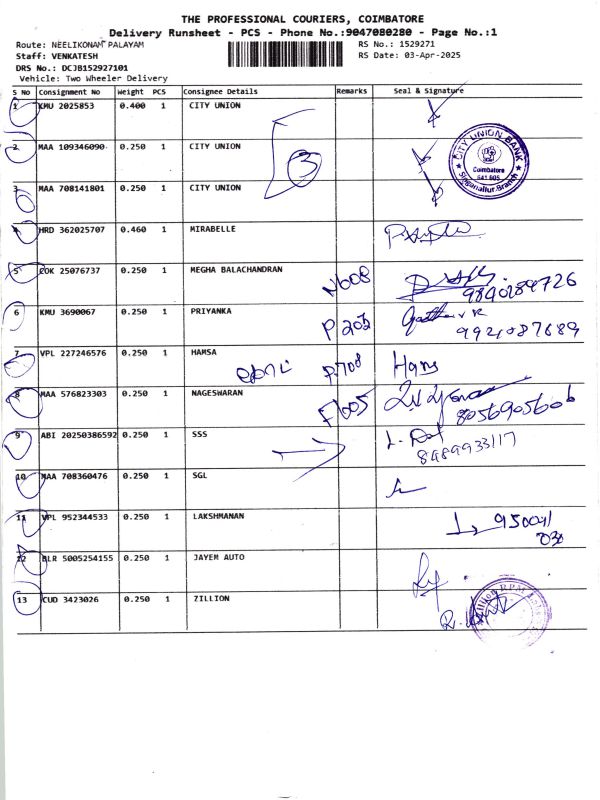 THE PROFESSIONAL COURIERS, COIMBATORE
Delivery Runsheet - PCS - Phone No.:9047080280 - Page No.:1
Route: NEELIKONAM PALAYAM RS No.: 1529271
Staff: VENKATESH RS Date: 03-Apr-2025
DRS No.: DCJB152927101
Vehicle: Two Wheeler Delivery
S No Consignment No Weight PCS Consignee Details Remarks Seal & Signature
1 KMU 2025853 0.400 1 CITY UNION
2 MAA 109346090 0.250 1 CITY UNION
3
CITY UNION BANK
Coimbatore
641 605
Singanallur Branch
3 MAA 708141801 0.250 1 CITY UNION
4 HRD 362025707 0.460 1 MIRABELLE
5 COK 25076737 0.250 1 MEGHA BALACHANDRAN N608
9840289726
6 KMU 3690067 0.250 1 PRIYANKA P 203
9921087689
7 VPL 227246576 0.250 1 HAMSA P.708 Hams
8 MAA 576823303 0.250 1 NAGESWARAN F605
8056905606
9 ABI 20250386592 0.250 1 SSS
8489933117
10 MAA 708360476 0.250 1 SGL
11 VPL 952344533 0.250 1 LAKSHMANAN
12 BLR 5005254155 0.250 1 JAYEM AUTO
13 CUD 3423026 0.250 1 ZILLION